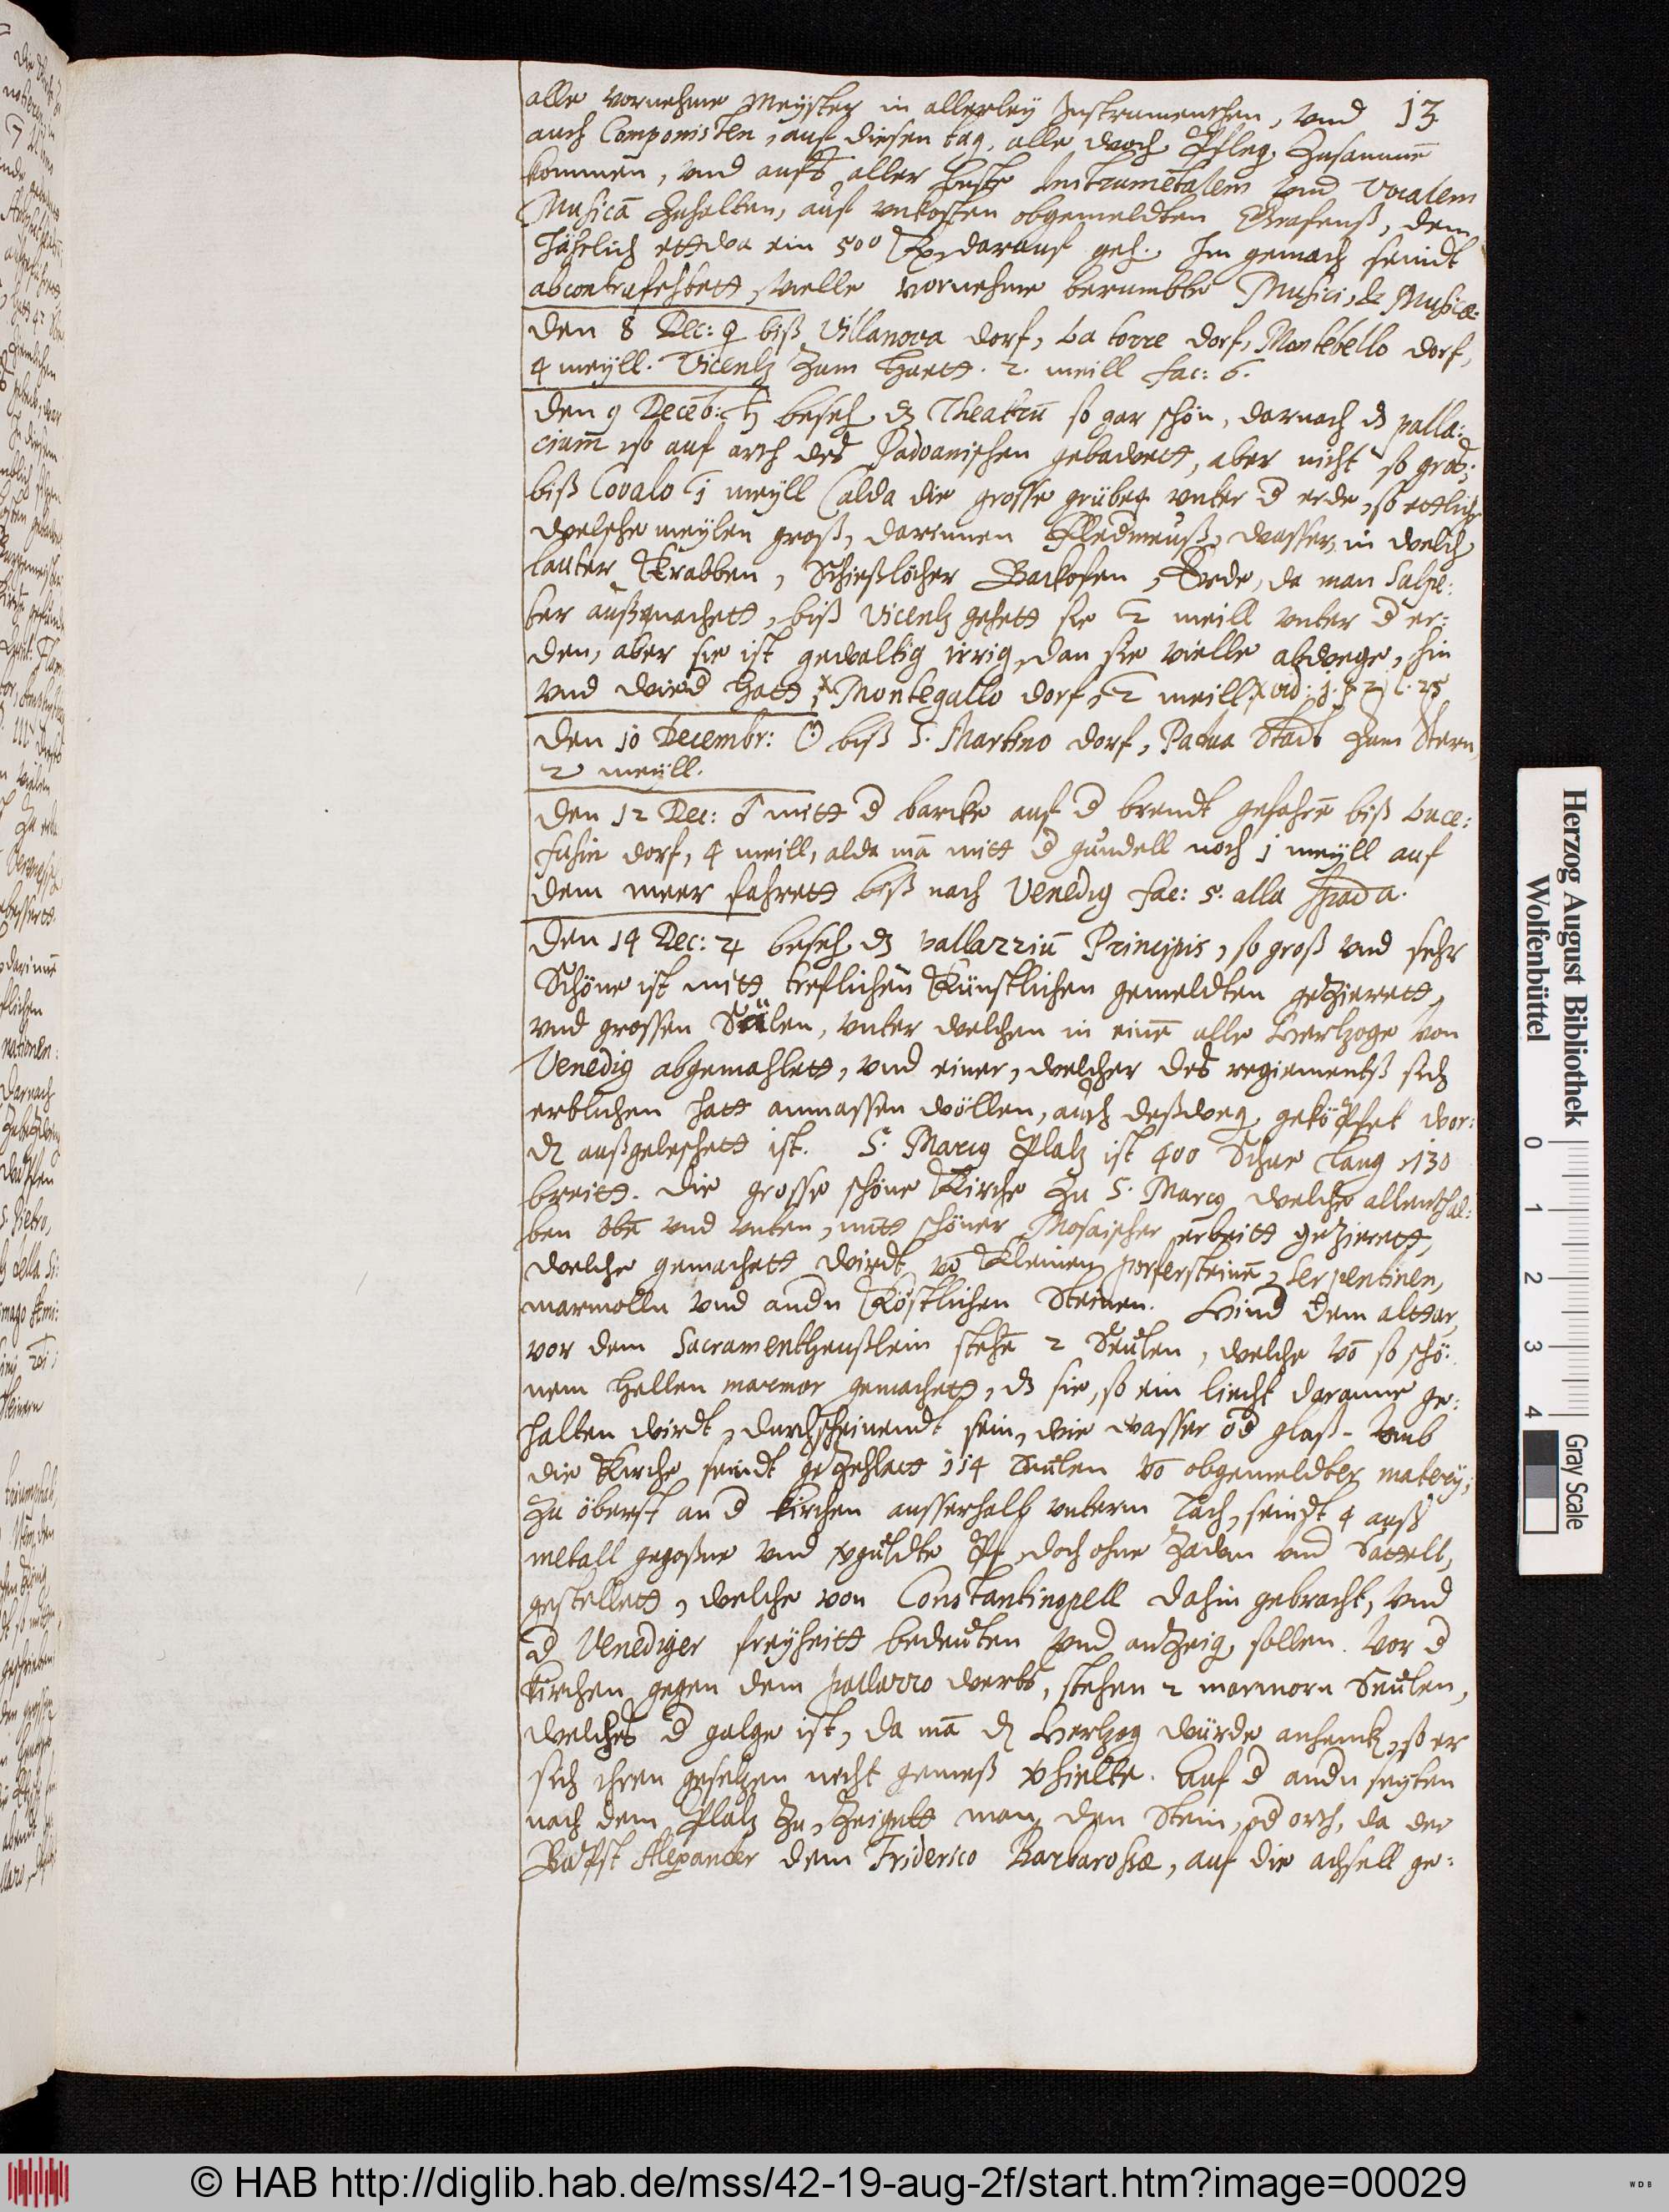 13.
alle vornehme Meyster in allerley Instrumenthen, vnd
auch Componisten, auf diesen tag, alle woch Pfleg, Zusamme͂
kommen, vnd aufs aller beste Instrume͂talem vnd vocalem
Musica͂ Zuhalten, auf vnkosten obgemeldten Grafenß, dem
Jährlich ettwa ein 500 darauf geh. Im gemach seindt
abcontrafehtett, vielle vornehme berumbte Musici, & Musicæ.
Den 8 Dec: ♀ biß Villanova dorf, La torre dorf, Montebello dorf,
4 meyll. Vicentz Zum Huett. 2. meill fac: 6.
Den 9 Dece͂b: ♄ beseh dz Theatru͂ so gar schön, darnach dz palla:
cium͂ so auf arth des Padoanischen gebawett, aber nicht so groß;
biß Covalo 1 meyll (alda die grosse grüben vnter d erde, so ettlich
welsche meylen groß, darinnen Fledmeuß, wasser, in welch
lauter Krabben, Schießlöcher Backofen, Erde, da man Salpe:
ter außmachett, biß Vicentz gehett sie 2 meill vnter d er:
den, aber sie ist gewaltig irrig, dan sie vielle abwege, hin
vnd wied hatt; Montegallo dorf, 2 meill
Den 10 Decembr: ☉ biß S. Martino dorf, Padua Stadt zum Stern
2 meyll.
Den 12 Dec: ♂ mitt d barcke auf d brendt gefahre͂ biß Luce:
fusin dorf, 4 meill, alda ma͂ mitt d gundell noch 1 meyll auf
dem meer fahrett biß nach Venedig fac: 5. alla spada.
Den 14 Dec: ♃ beseh dz pallazziu͂ Principis, so groß vnd sehr
Schöne ist mitt treflichen Künstlichen gemeldten gezierett,
vnd grossen Sälen, vnter welchen in eine͂ alle Hertzoge von
Venedig abgemahlett, vnd einer, welcher des regiementß sich
erblichen hatt anmassen wöllen, auch deßweg, geköpfet wor:
dz außgeleschett ist. S. Marcy Platz ist 400 Schue lang, 130
breitt. Die grosse schöne Kirche Zu S. Marcy welche allenthal:
ben obe͂ vnd vnten, mitt schöner Mosaischer erbeitt gezierett,
welche gemachett wirdt vo͂ Kleinen porfersteine͂, Serpentinen,
marmolln vnd andn Köstlichen Steinen. Hind dem althar,
vor dem Sacramentheußlein stehe͂ 2 Seulen, welche vo͂ so schö:
nem Hellen marmor gemachett, dz sie, so ein liecht daranne ge:
halten wirdt, durchscheinendt sein, wie wasser od glaß - Vmb
die Kirche seindt gezehlett 114 Seulen vo͂ obgemeldter matery;
Zu öberst an d kirchen ausserhalb vnterm Tach, seindt 4 auß
metall gegoßne vnd vguldte Pf, doch ohne Zaum vnd Sattell,
gestellett, welche von Constantinopell dahin gebracht, vnd
d Venediger freyheitt bedeuten vnd anzeig, sollen. Vor d
kirchen gegen dem pallazzo werts, stehen 2 marmorn Seulen,
welches d galge ist, da ma͂ dz Hertzog würde anhenck, so er
sich ihren gesetzen nicht gemeß vhielte. Auf d andn seyten
nach dem Platz Zu, Zeigett man den Stein, od orth, da der
Bapst Alexander dem Friderico Barbarossæ, auf die achsell ge:
Herzog August Bibliothek
Wolfenbüttel
0 1 2 3 4
Gray Scale
© HAB http://diglib.hab.de/mss/42-19-aug-2f/start.htm?image=00029
WDB